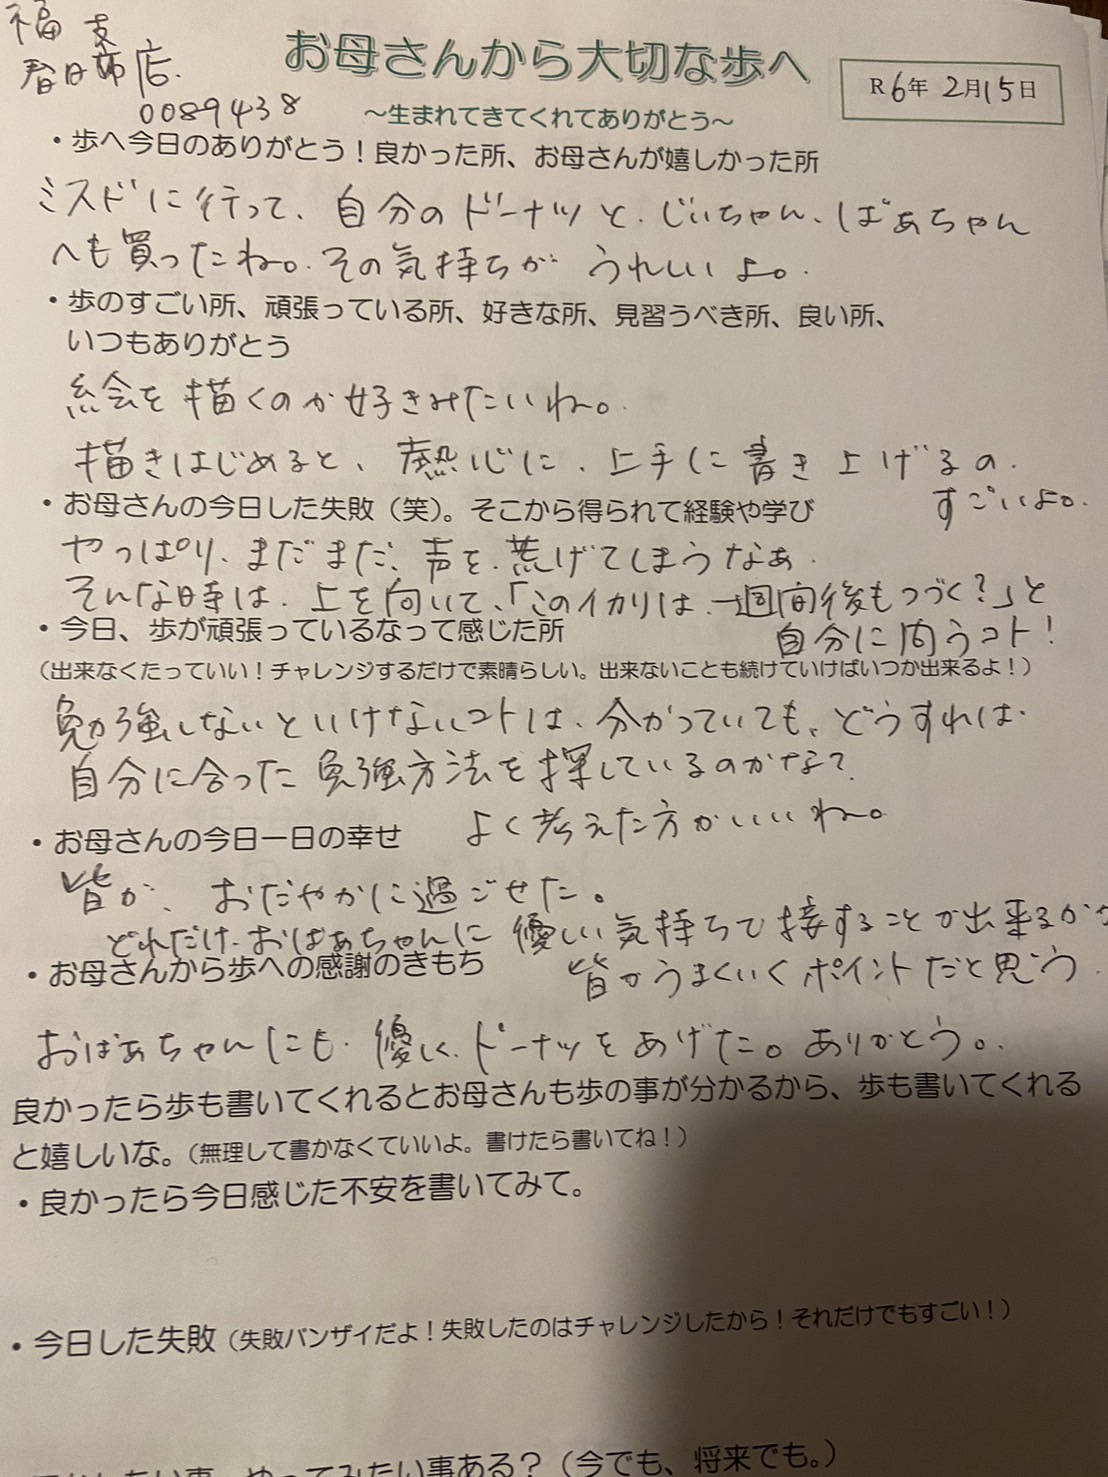 福 支
春日部店.
0089438
お母さんから大切な歩へ
R6年 2月15日
～生まれてきてくれてありがとう～
・歩へ今日のありがとう！良かった所、お母さんが嬉しかった所
ミスドに行って、自分のドーナツと、じいちゃん、ばあちゃん
へも買ったね。その気持ちが うれしいよ。
・歩のすごい所、頑張っている所、好きな所、見習うべき所、良い所、
いつもありがとう
絵を描くのが好きみたいね。
描きはじめると、熱心に、上手に書き上げるの、
すごいよ。
・お母さんの今日した失敗（笑）。そこから得られて経験や学び
やっぱり、まだまだ、声を、荒げてしまうなぁ
そんな時は、上を向いて、「このイカリは、一週間後もつづく？」と
自分に問うコト！
・今日、歩が頑張っているなって感じた所
（出来なくたっていい！チャレンジするだけで素晴らしい。出来ないことも続けていけばいつか出来るよ！）
勉強しないといけないコトは、分かっていても、どうすれば
自分に合った勉強方法を探しているのかな？
よく考えた方がいいね。
・お母さんの今日一日の幸せ
皆が、おだやかに過ごせた。
どれだけ、おばあちゃんに 優しい気持ちで接することが出来るかが
皆がうまくいくポイントだと思う
・お母さんから歩への感謝のきもち
おばあちゃんにも、優しく、ドーナツをあげた。ありがとう。
良かったら歩も書いてくれるとお母さんも歩の事が分かるから、歩も書いてくれる
と嬉しいな。（無理して書かなくていいよ。書けたら書いてね！）
・良かったら今日感じた不安を書いてみて。
・今日した失敗（失敗バンザイだよ！失敗したのはチャレンジしたから！それだけでもすごい！）
やってみたい事ある？（今でも、将来でも。）